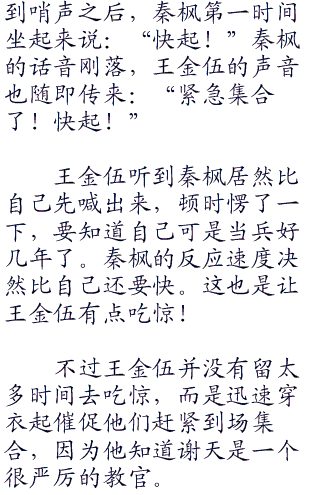 到哨声之后，秦枫第一时间
坐起来说：“快起！”秦枫
的话音刚落，王金伍的声音
也随即传来：“紧急集合
了！快起！”
王金伍听到秦枫居然比
自己先喊出来，顿时愣了一
下，要知道自己可是当兵好
几年了。秦枫的反应速度决
然比自己还要快。这也是让
王金伍有点吃惊！
不过王金伍并没有留太
多时间去吃惊，而是迅速穿
衣起催促他们赶紧到场集
合，因为他知道谢天是一个
很严厉的教官。